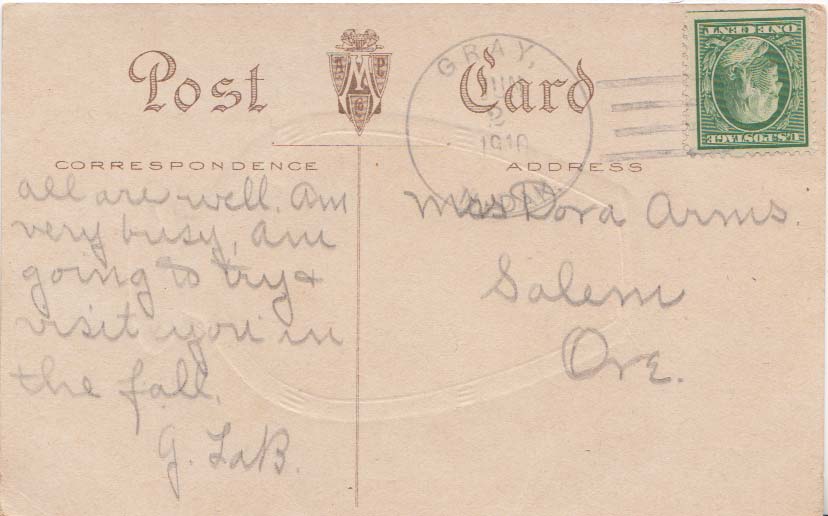 Post Card
CORRESPONDENCE
all are well. Am
very busy, am
going to try +
visit you in
the fall.
G. LaB.
GRAY,
JUN
2
1910
IDAHO
ADDRESS
Mrs Dora Arms.
Salem
Ore.
U.S. POSTAGE
ONE CENT